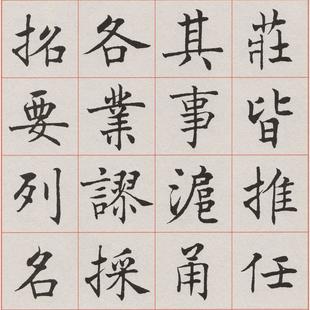 莊皆推任
其事滬甬
各業謬採
招要列名